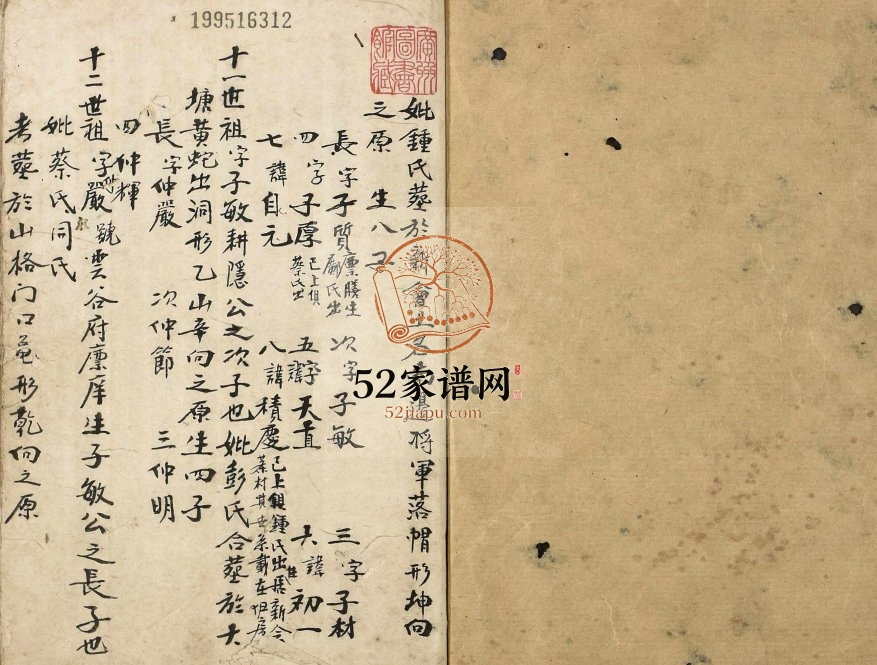 199516312
廣州圖書館藏
妣鍾氏墓於新會土名 將軍落帽形坤向
之原 生八子
長字子質廩膳生鄺氏出 次字子敏 三字子材
四字子厚已上俱蔡氏出 五字天直 六諱初一
七諱自元 八諱積慶已上俱鍾氏出居新會
十一世祖字子敏耕隱公之次子也妣彭氏合墓於大
塘黃蛇出洞形乙山辛向之原生四子
長字仲嚴 次仲節 三仲明
四仲輝
十二世祖字嚴號雲谷府廩庠生子敏公之長子也
妣蔡氏同氏
考墓於山格门口 形乾向之原
52家谱网
52jiapu.com